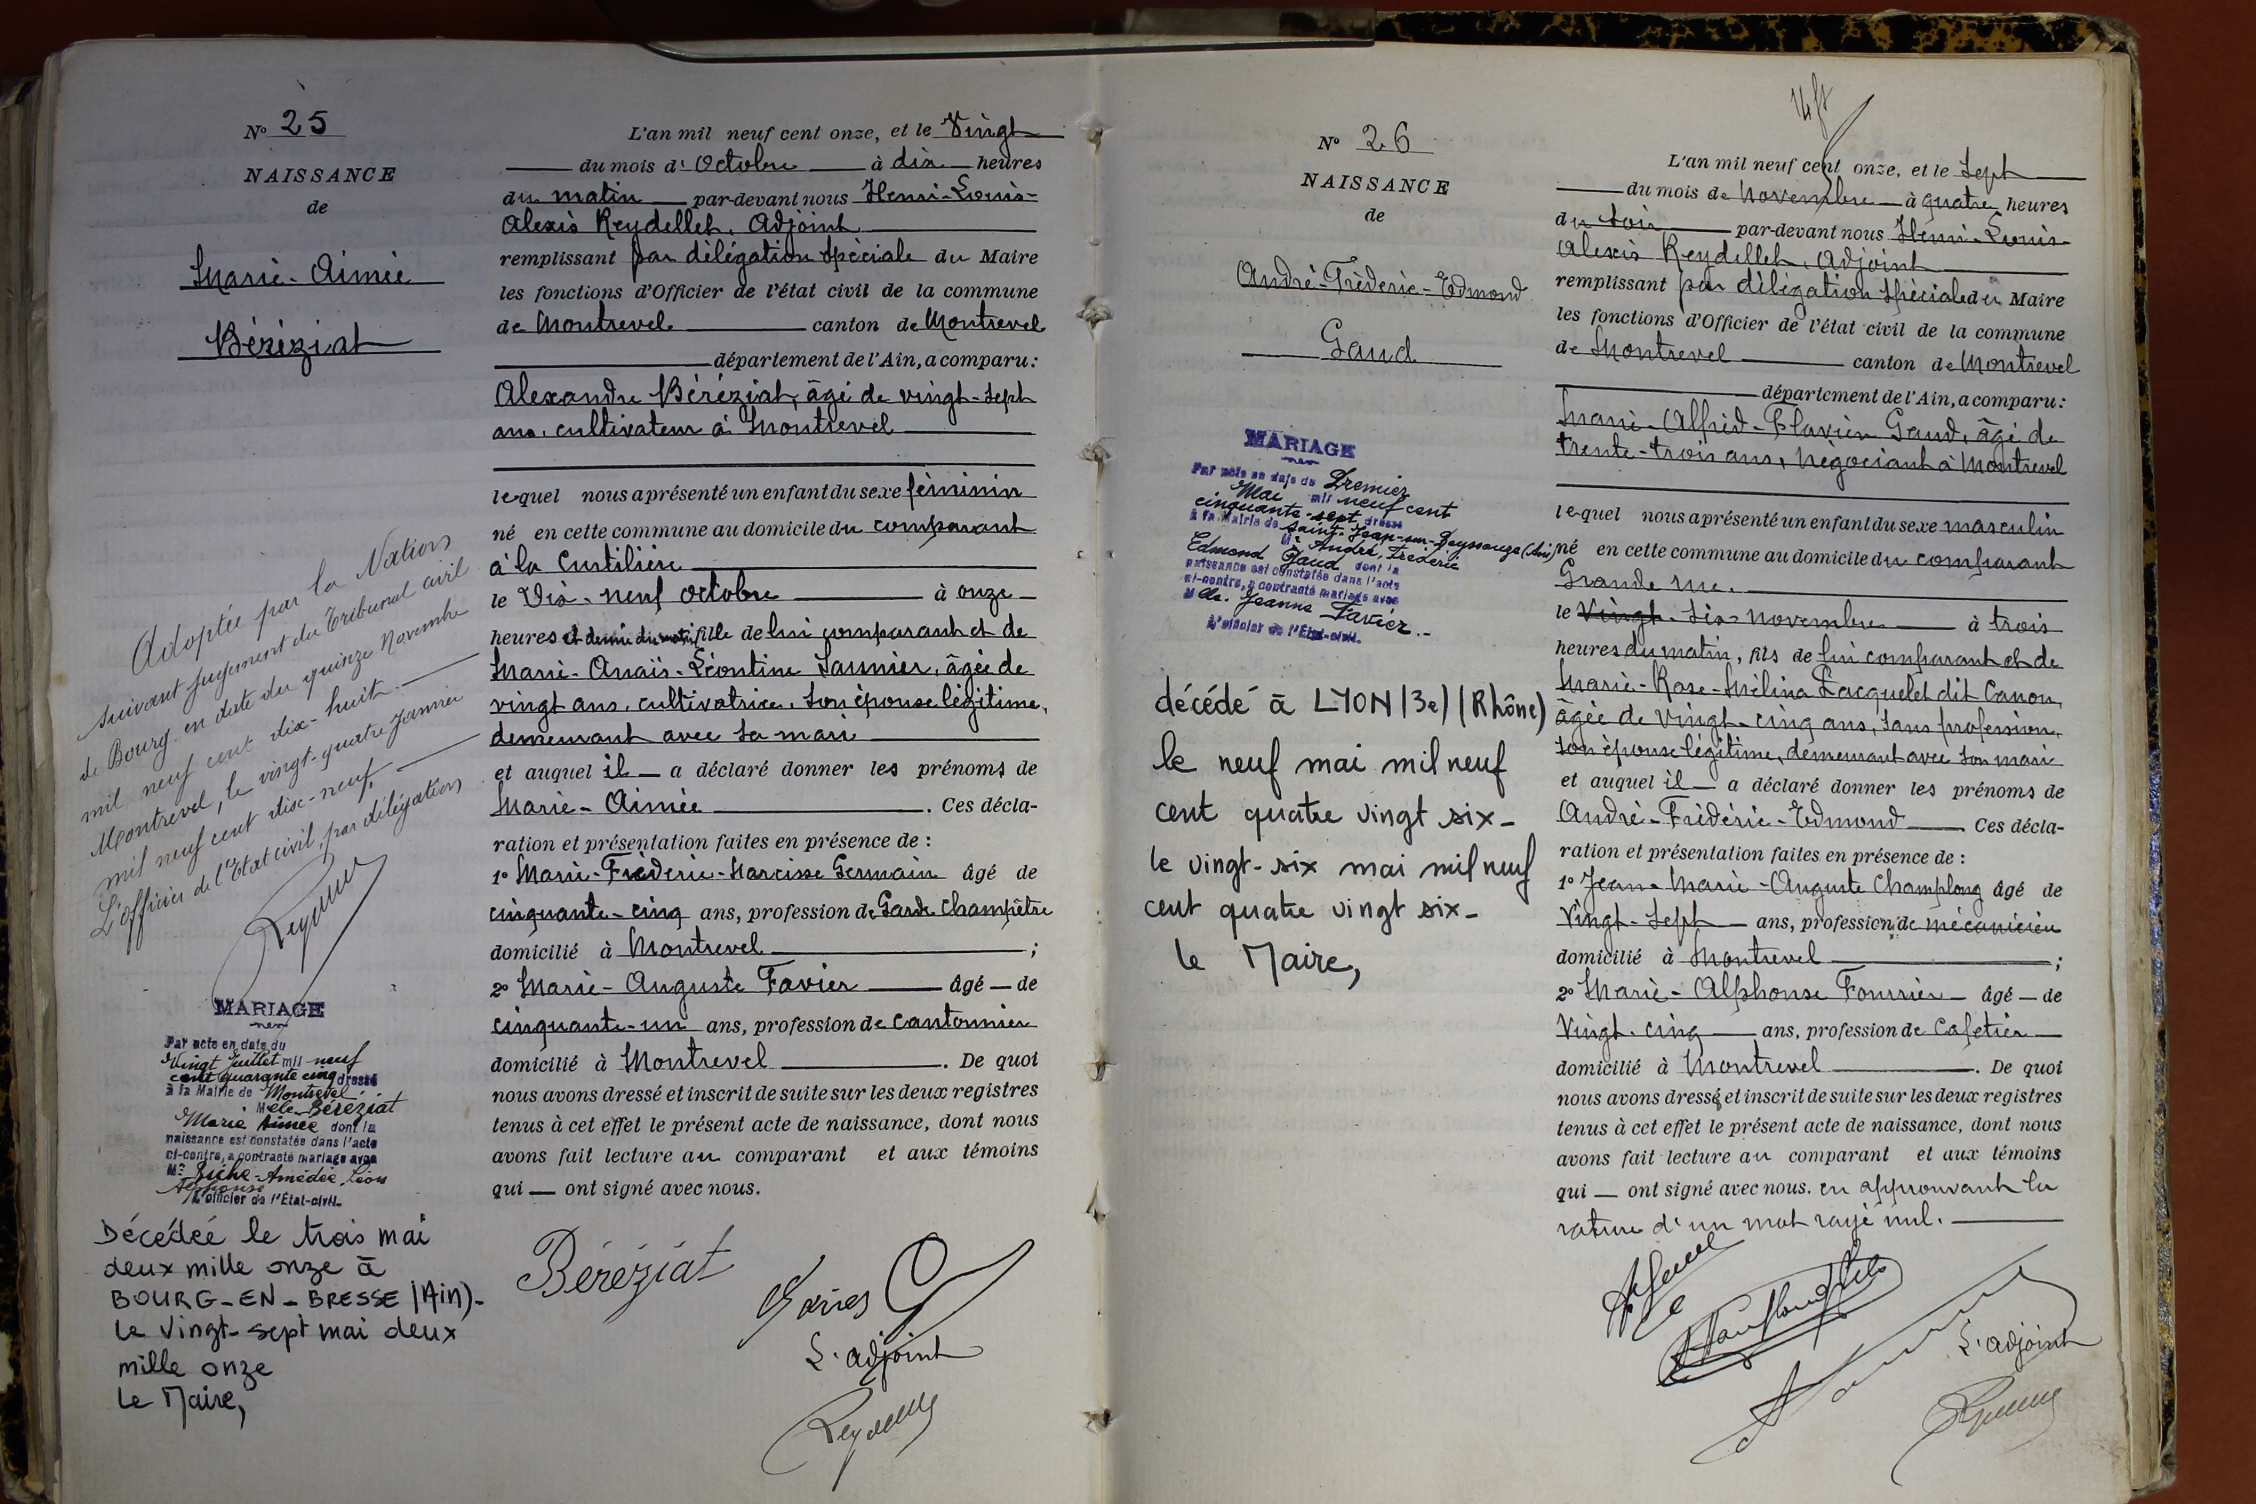 N° 25
NAISSANCE
de
Marie-Aimée
Béréziat
Adoptée par la Nation
suivant jugement du Tribunal civil
de Bourg en date du quinze Novembre
mil neuf cent dix-huit.
Montrevel, le vingt-quatre Janvier
mil neuf cent dix-neuf,
L'officier de l'Etat civil, par délégation
MARIAGE
Par acte en date du
Vingt Juillet mil neuf
cent quarante cinq dressé
à la Mairie de Montrevel
Melle Béréziat
Marie Aimée dont la
naissance est constatée dans l'acte
ci-contre, a contracté mariage avec
Mr Amédée Léon
Alphonse
L'officier de l'Etat-civil.
Décédée le trois mai
deux mille onze à
BOURG-EN-BRESSE (Ain)-
Le vingt-sept mai deux
mille onze
Le Maire,
L'an mil neuf cent onze, et le Vingt
du mois d'Octobre à dix heures
du matin par-devant nous Henri-Louis-
Alexis Reydellet, Adjoint
remplissant par délégation spéciale du Maire
les fonctions d'Officier de l'état civil de la commune
de Montrevel canton de Montrevel
département de l'Ain, a comparu:
Alexandre Béréziat, âgé de vingt-sept
ans, cultivateur à Montrevel
lequel nous a présenté un enfant du sexe féminin
né en cette commune au domicile du comparant
à la Curtilière
le Dix-neuf octobre à onze
heures et demie du matin fille de lui comparant et de
Marie-Anaïs-Léontine Saunier, âgée de
vingt ans, cultivatrice, son épouse légitime,
demeurant avec sa mari
et auquel il a déclaré donner les prénoms de
Marie-Aimée. Ces décla-
ration et présentation faites en présence de :
1° Marie-Frédéric-Narcisse Germain âgé de
cinquante-cinq ans, profession de Garde champêtre
domicilié à Montrevel ;
2° Marie-Auguste Favier âgé de
cinquante-un ans, profession de cantonnier
domicilié à Montrevel. De quoi
nous avons dressé et inscrit de suite sur les deux registres
tenus à cet effet le présent acte de naissance, dont nous
avons fait lecture au comparant et aux témoins
qui ont signé avec nous.
Béréziat
L'adjoint
N° 26
NAISSANCE
de
André-Frédéric-Edmond
Gaud
MARIAGE
Par acte en date du Premier
Mai mil neuf cent
cinquante-sept, dressé
à la Mairie de Saint-Jean-sur-Reyssouze (Ain)
Mr André, Frédéric
Edmond Gaud dont la
naissance est constatée dans l'acte
ci-contre, a contracté mariage avec
Melle Jeanne Favier.-
L'officier de l'Etat-civil.
décédé à LYON (3e) (Rhône)
le neuf mai mil neuf
cent quatre vingt six-
le vingt-six mai mil neuf
cent quatre vingt six-
Le Maire,
L'an mil neuf cent onze, et le Sept
du mois de Novembre à quatre heures
du soir par-devant nous Henri-Louis-
Alexis Reydellet, Adjoint
remplissant par délégation spéciale du Maire
les fonctions d'Officier de l'état civil de la commune
de Montrevel canton de Montrevel
département de l'Ain, a comparu:
Marie-Alfred-Flavien Gaud, âgé de
trente-trois ans, négociant à Montrevel
lequel nous a présenté un enfant du sexe masculin
né en cette commune au domicile du comparant
Grande rue.
le Vingt-Six novembre à trois
heures du matin, fils de lui comparant et de
Marie-Rose-Mélina Pacquelet dit Canon,
âgée de vingt-cinq ans, sans profession,
son épouse légitime, demeurant avec son mari
et auquel il a déclaré donner les prénoms de
André-Frédéric-Edmond Ces décla-
ration et présentation faites en présence de :
1° Jean-Marie-Auguste Champlong âgé de
Vingt-Sept ans, profession de mécanicien
domicilié à Montrevel ;
2° Marie-Alphonse Fournier âgé de
Vingt-cinq ans, profession de Cafetier
domicilié à Montrevel. De quoi
nous avons dressé et inscrit de suite sur les deux registres
tenus à cet effet le présent acte de naissance, dont nous
avons fait lecture au comparant et aux témoins
qui ont signé avec nous. en approuvant la
rature d'un mot rayé nul.
L'adjoint